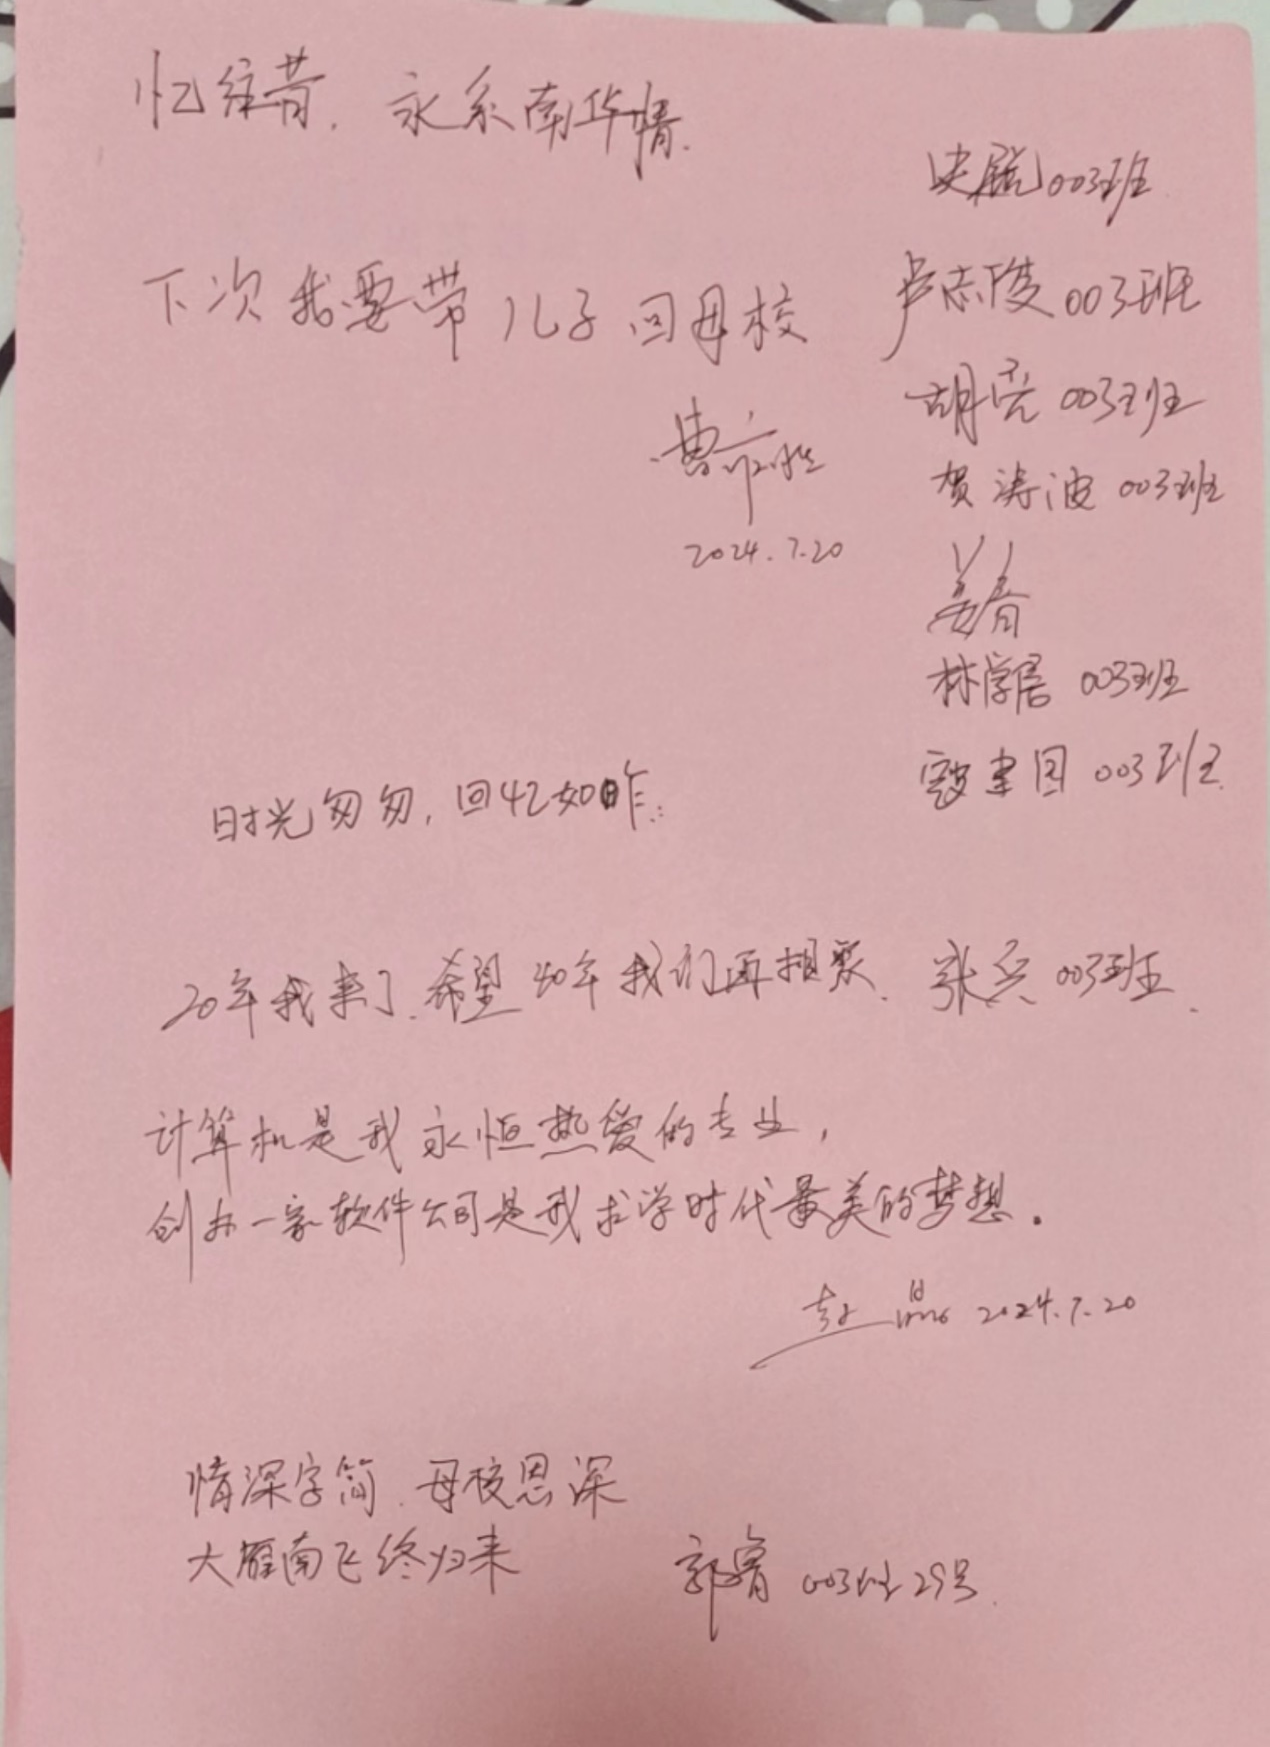 忆往昔, 永系南华情.
史航 003班
下次我要带儿子回母校
卢志陵 003班
胡亮 003班
曹
贺涛波 003班
2024.7.20
姜春
林学居 003班
寇建国 003班
时光匆匆, 回忆如昨.
20年我来了. 希望40年我们再相聚. 张兵 003班.
计算机是我永恒热爱的专业,
创办一家软件公司是我求学时代最美的梦想.
赵晶 2024.7.20
情深字简. 母校恩深
大雁南飞终归来
郭睿 003班29号.